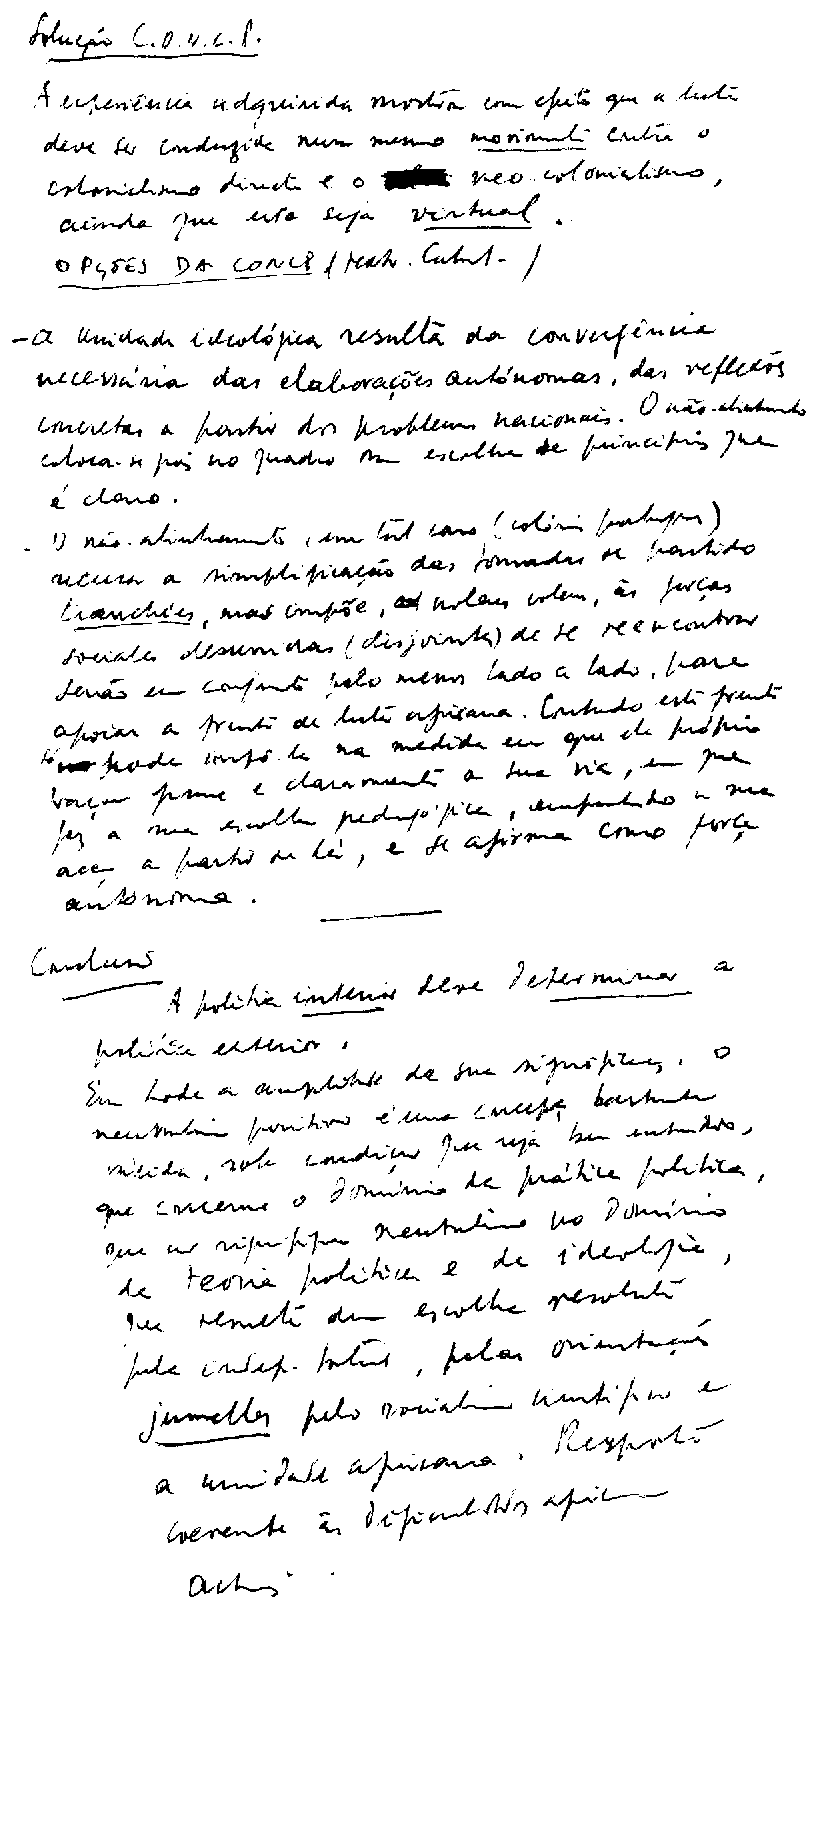 Solução C.O.N.C.P.
A experiência adquirida mostra com efeito que a luta
deve ser conduzida num mesmo movimento contra o
colonialismo directo e o neo colonialismo,
ainda que este seja virtual.
OPÇÕES DA CONCP (
- A unidade ideológica resulta da convergência
necessária das elaborações autónomas, das reflexões
concretas a partir dos problemas nacionais. O não-alinhamento
coloca-se pois no quadro de escolha de principios que
é claro.
- O não-alinhamento, em tal caso (colónias portuguesas)
recusa a simplificação das tomadas de partido
tranchées, mas impõe, nolens volens, às forças
sociales desunidas (disjointes) de se reencontrar
senão em conjunto pelo menos lado a lado, para
apoiar a frente de luta africana. Contudo esta frente
só pode impô-la na medida em que ela própria
traçou firme e claramente a sua via, em que
fez a sua escolha pedagógica, a sua
acção a partir de lá, e se afirma como força
autónoma.
Conclusão
A politica interior deve determinar a
politica exterior.
Em toda a amplitude da sua significação, o
neutralismo positivo é uma concepção bastante
nítida, sob condição que seja bem entendido,
que concerne o dominio da prática politica,
que não significa neutralismo no dominio
da teoria politica e da ideologia,
que remete duma escolha resoluta
pela indep. total, pelas orientações
jumelles pelo socialismo cientifico e
a unidade africana. Resposta
coerente às dificuldades africanas
actuais.